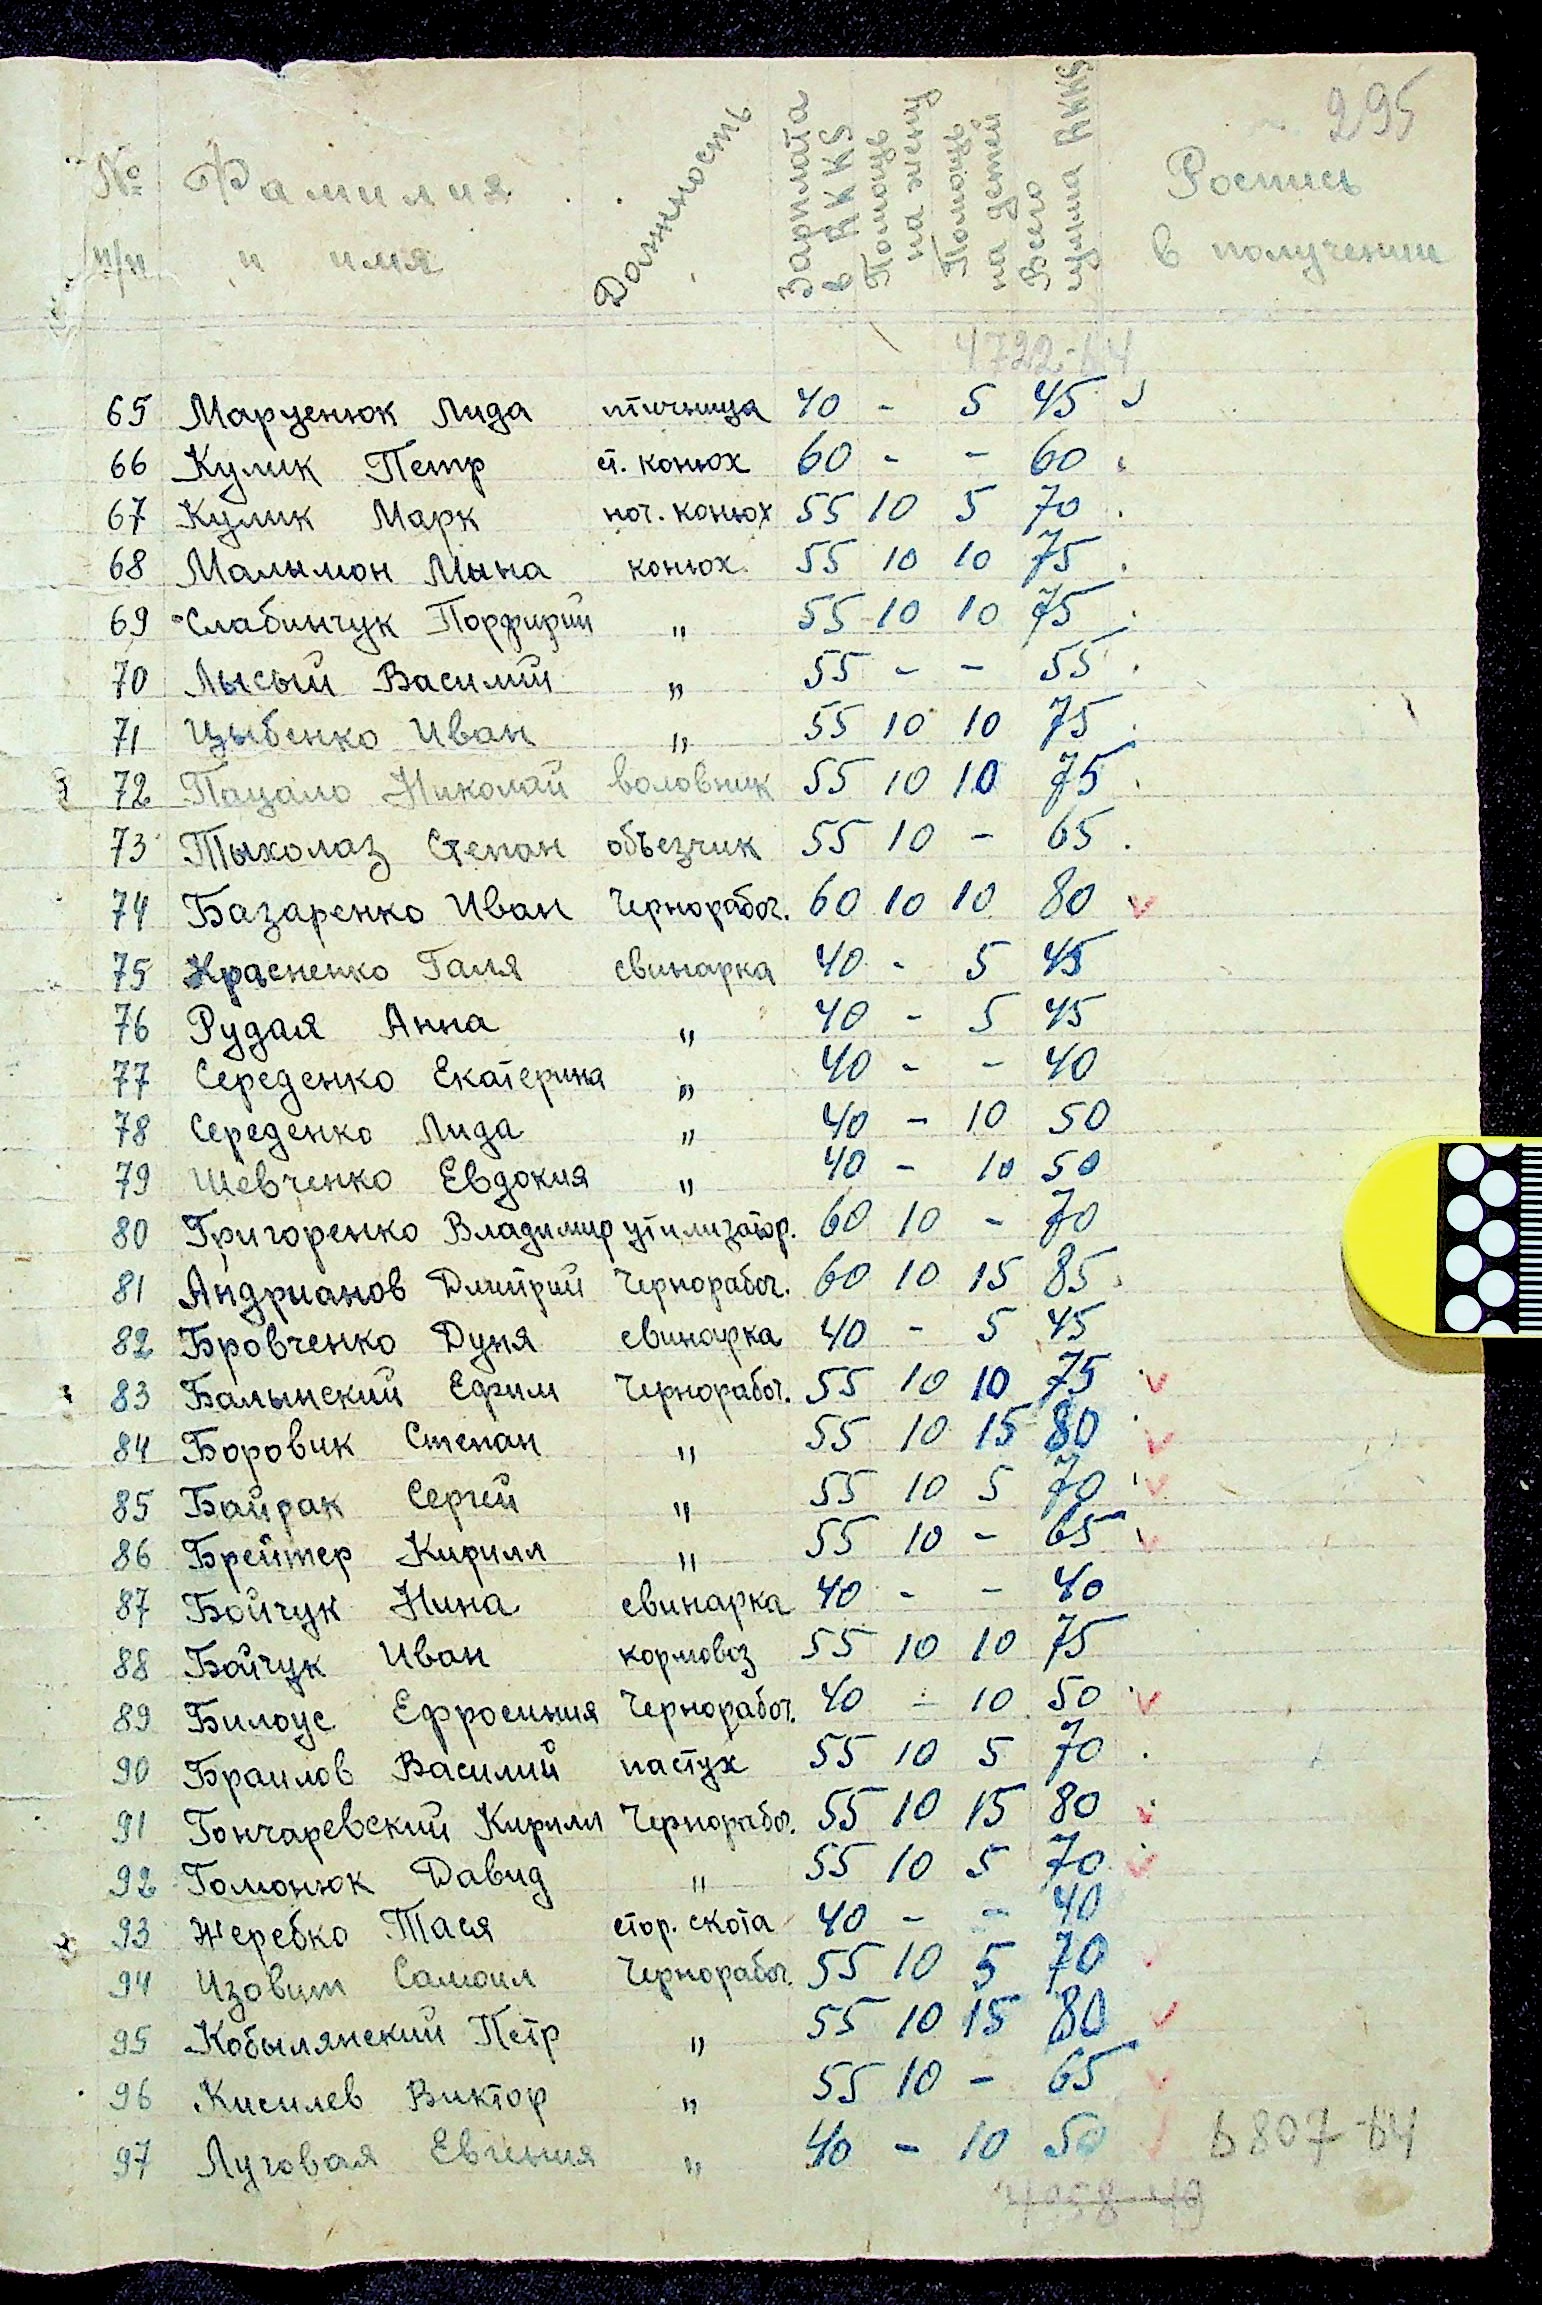 295
№ п/п Фамилия и имя Должность Зарплата в RKKS Помощь на жену Помощь на детей Всего сумма RKKS Роспись в получении
4722-64
65 Марценюк Лида птичница 40 - 5 45
66 Кулик Петр ст. конюх 60 - - 60
67 Кулик Марк ноч. конюх 55 10 5 70
68 Малымон Мына конюх 55 10 10 75
69 Слабинчук Порфирий " 55 10 10 75
70 Лысый Василий " 55 - - 55
71 Цыбенко Иван " 55 10 10 75
72 Пацало Николай воловник 55 10 10 75
73 Тыхолаз Степан объезчик 55 10 - 65
74 Базаренко Иван Чернорабоч. 60 10 10 80
75 Красненко Галя свинарка 40 - 5 45
76 Рудая Анна " 40 - 5 45
77 Середенко Екатерина " 40 - - 40
78 Середенко Лида " 40 - 10 50
79 Шевченко Евдокия " 40 - 10 50
80 Григоренко Владимир утилизатор. 60 10 - 70
81 Андрианов Дмитрий Чернорабоч. 60 10 15 85
82 Бровченко Дуня свинарка 40 - 5 45
83 Балынский Ефим Чернорабоч. 55 10 10 75
84 Боровик Степан " 55 10 15 80
85 Байрак Сергей " 55 10 5 70
86 Брейтер Кирилл " 55 10 - 65
87 Бойчук Нина свинарка 40 - - 40
88 Бойчук Иван кормовоз 55 10 10 75
89 Билоус Ефросиния Чернорабоч. 40 - 10 50
90 Браилов Василий пастух 55 10 5 70
91 Гончаревский Кирилл Чернорабоч. 55 10 15 80
92 Гомонюк Давид " 55 10 5 70
93 Жеребко Тася стор. скота 40 - - 40
94 Изовит Самоил Чернорабоч. 55 10 5 70
95 Кобылянский Петр " 55 10 15 80
96 Кисилев Виктор " 55 10 - 65
97 Луговая Евгения " 40 - 10 50
6807-64
4958-49